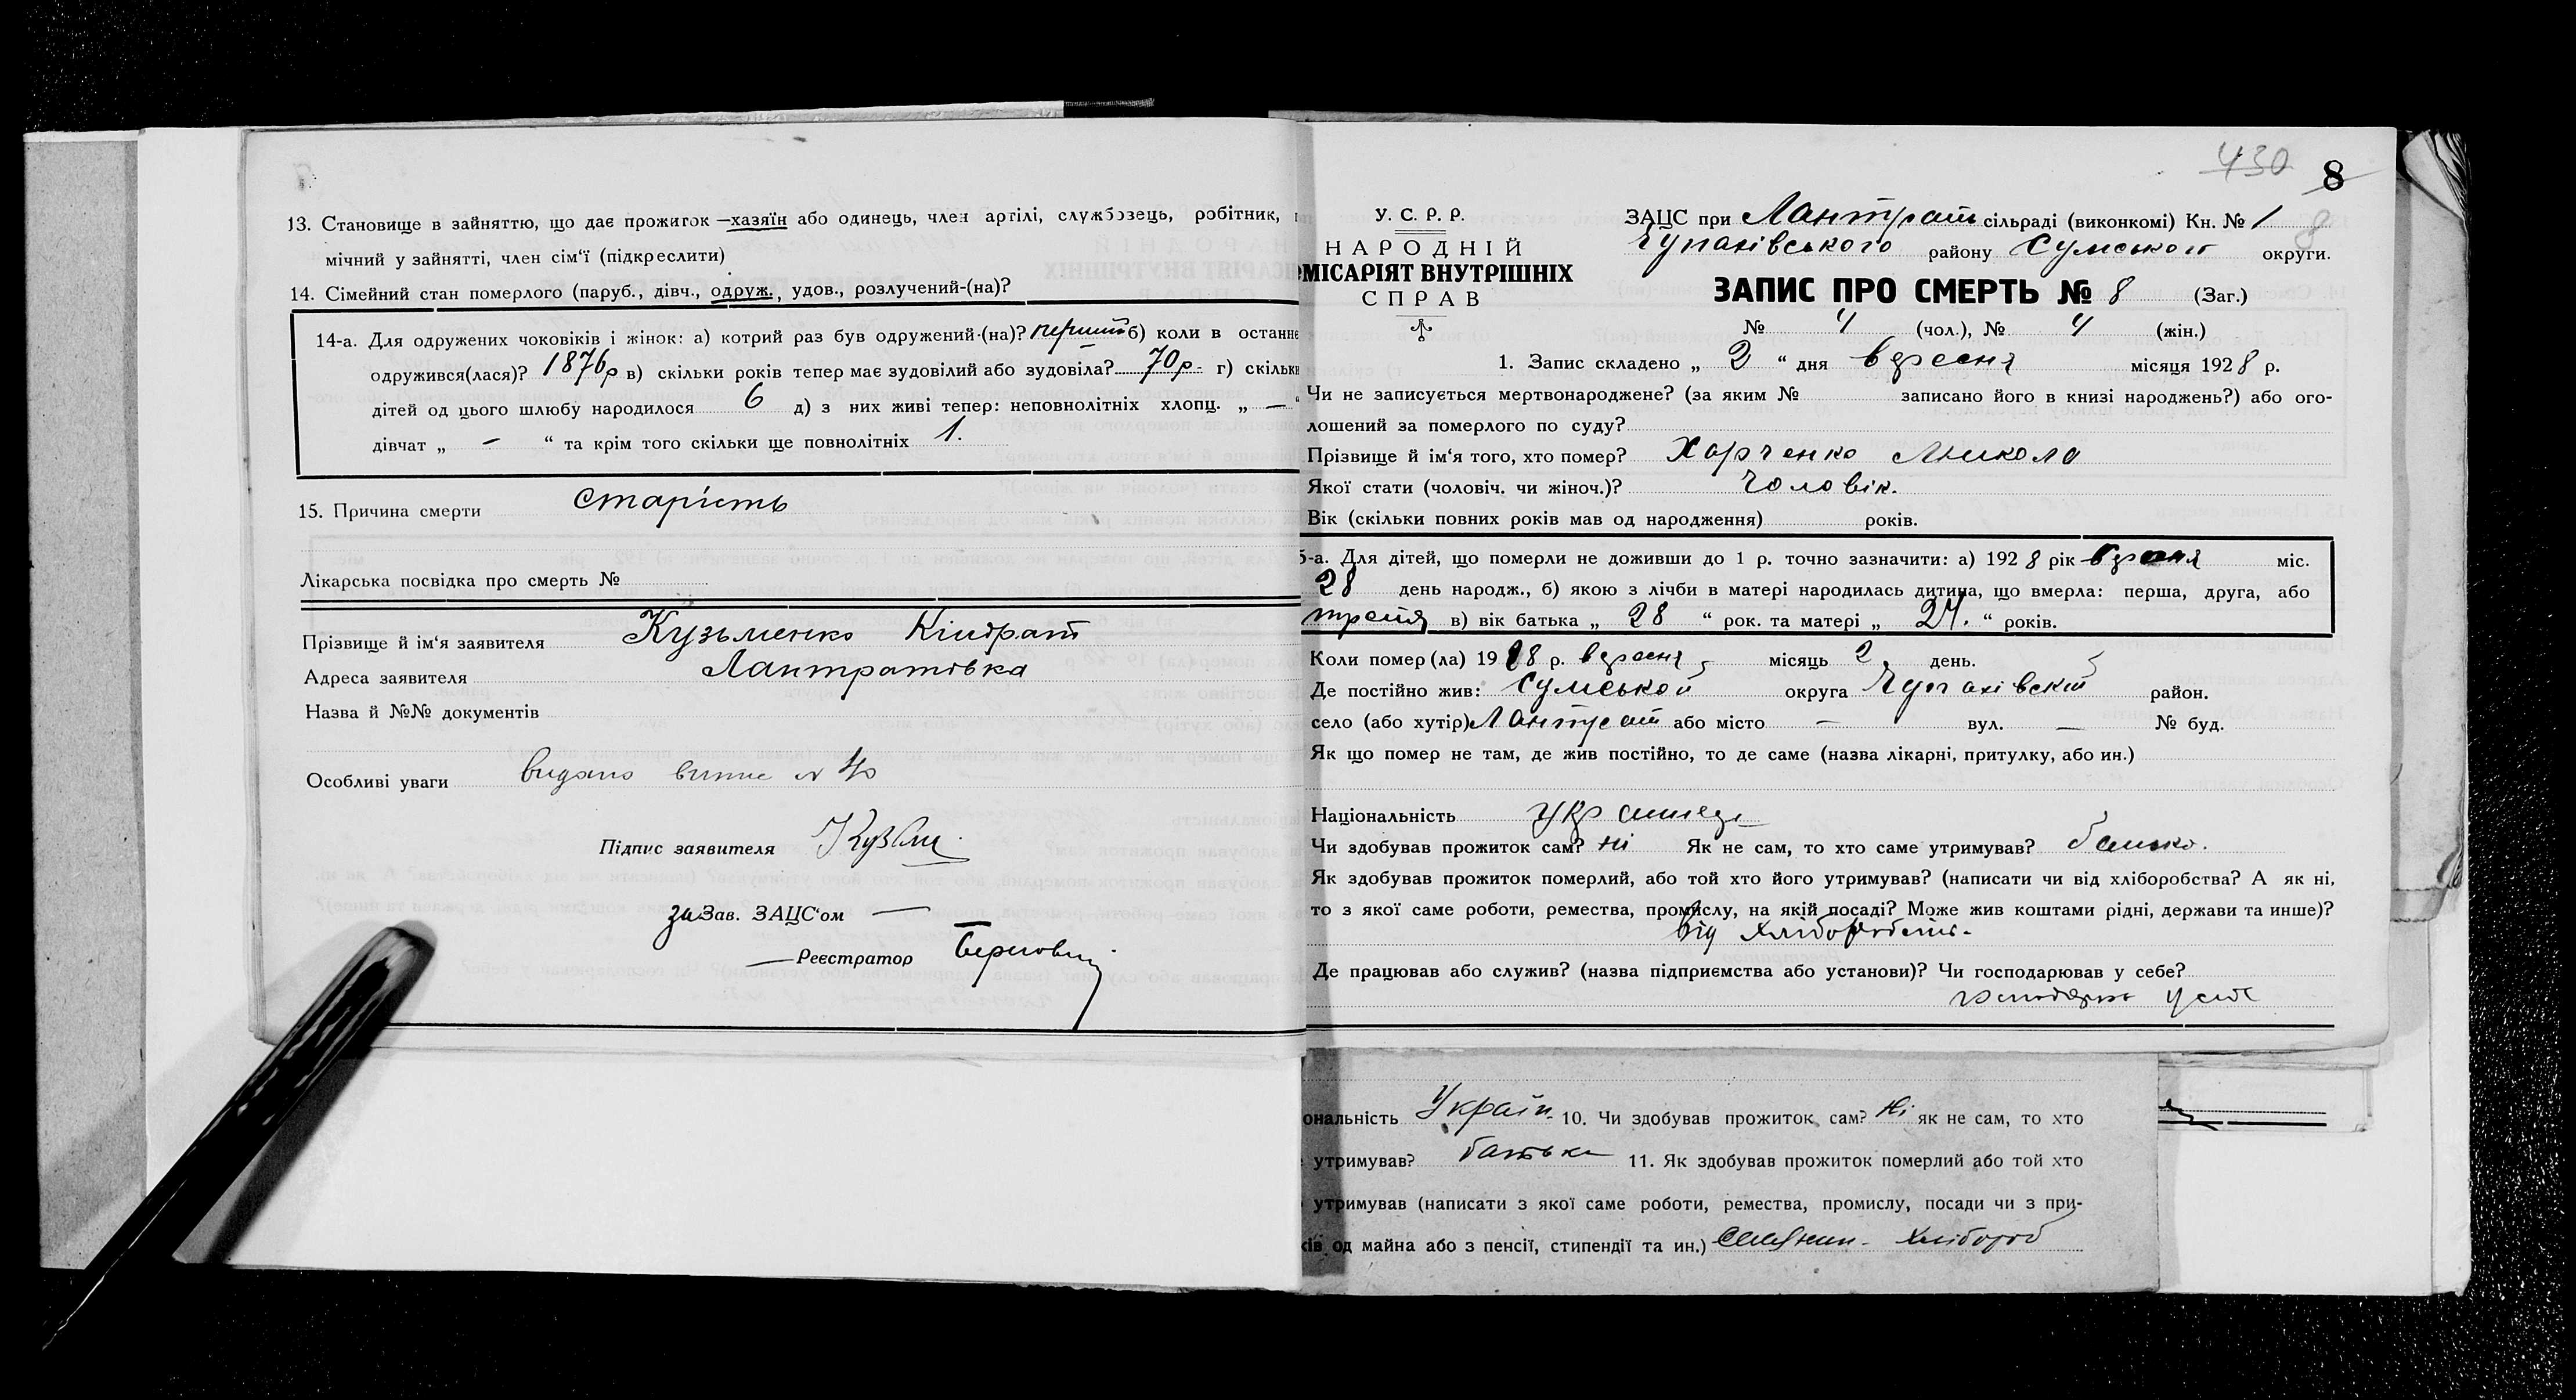 13. Становище в зайняттю, що дає прожиток — хазяїн або одинець, член артілі, службовець, робітник,
мічний у зайнятті, член сім'ї (підкреслити)
14. Сімейний стан померлого (паруб., дівч., одруж., удов., розлучений-(на)?
14-а. Для одружених чоковіків і жінок: а) котрий раз був одружений-(на)? перший б) коли в останнє
одружився(лася)? 1876 р в) скільки років тепер має зудовілий або зудовіла? 70 р. г) скільки
дітей од цього шлюбу народилося 6 д) з них живі тепер: неповнолітніх хлопц. „ — "
дівчат „ — " та крім того скільки ще повнолітніх 1.
15. Причина смерти старість
Лікарська посвідка про смерть №
Прізвище й ім'я заявителя Кузьменко Кіндрат
Адреса заявителя Лантратівка
Назва й №№ документів
Особливі уваги видано випис №
Підпис заявителя Кузьм
за Зав. ЗАЦС'ом —
— Реєстратор
430 8
У. С. Р. Р.
НАРОДНІЙ
МІСАРІЯТ ВНУТРІШНІХ
СПРАВ
ЗАЦС при Лантрат сільраді (виконкомі) Кн. № 1
8
Чупахівського району Сумського округи.
ЗАПИС ПРО СМЕРТЬ № 8 (Заг.)
№ 4 (чол.), № 4 (жін.)
1. Запис складено „ 2 " дня вересня місяця 1928 р.
Чи не записується мертвонароджене? (за яким № записано його в книзі народжень?) або ого-
лошений за померлого по суду?
Прізвище й ім'я того, хто помер? Харченко Микола
Якої стати (чоловіч. чи жіноч.)? Чоловік.
Вік (скільки повних років мав од народження) років.
5-а. Для дітей, що померли не доживши до 1 р. точно зазначити: а) 1928 рік вресня міс.
28 день народж., б) якою з лічби в матері народилась дитина, що вмерла: перша, друга, або
третя в) вік батька „ 28 " рок. та матері „ 27. " років.
Коли помер (ла) 1928 р. вересня місяць 2 день.
Де постійно жив: Сумської округа Чупахівській район.
село (або хутір) Лантрат або місто — вул. — № буд.
Як що помер не там, де жив постійно, то де саме (назва лікарні, притулку, або ин.)
Національність
Чи здобував прожиток сам? ні Як не сам, то хто саме утримував? батько.
Як здобував прожиток померлий, або той хто його утримував? (написати чи від хліборобства? А як ні,
то з якої саме роботи, ремества, промислу, на якій посаді? Може жив коштами рідні, держави та инше)?
від хліборобств.
Де працював або служив? (назва підприємства або установи)? Чи господарював у себе?
у себе
ональність Україн. 10. Чи здобував прожиток сам? Ні як не сам, то хто
утримував? батько 11. Як здобував прожиток померлий або той хто
утримував (написати з якої саме роботи, ремества, промислу, посади чи з при-
ків од майна або з пенсії, стипендії та ин.) Селянин - хлібороб